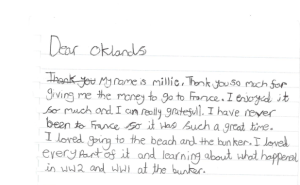 Dear oklands
Thank you My name is millie. Thank you so much for
giving me the money to go to France. I enboyed it
so much and I am really gratefull. I have never
been to France so it was such a great time.
I loved going to the beach and the bunker. I loved
every part of it and learning about what happened
in WW2 and WW1 at the bunker.